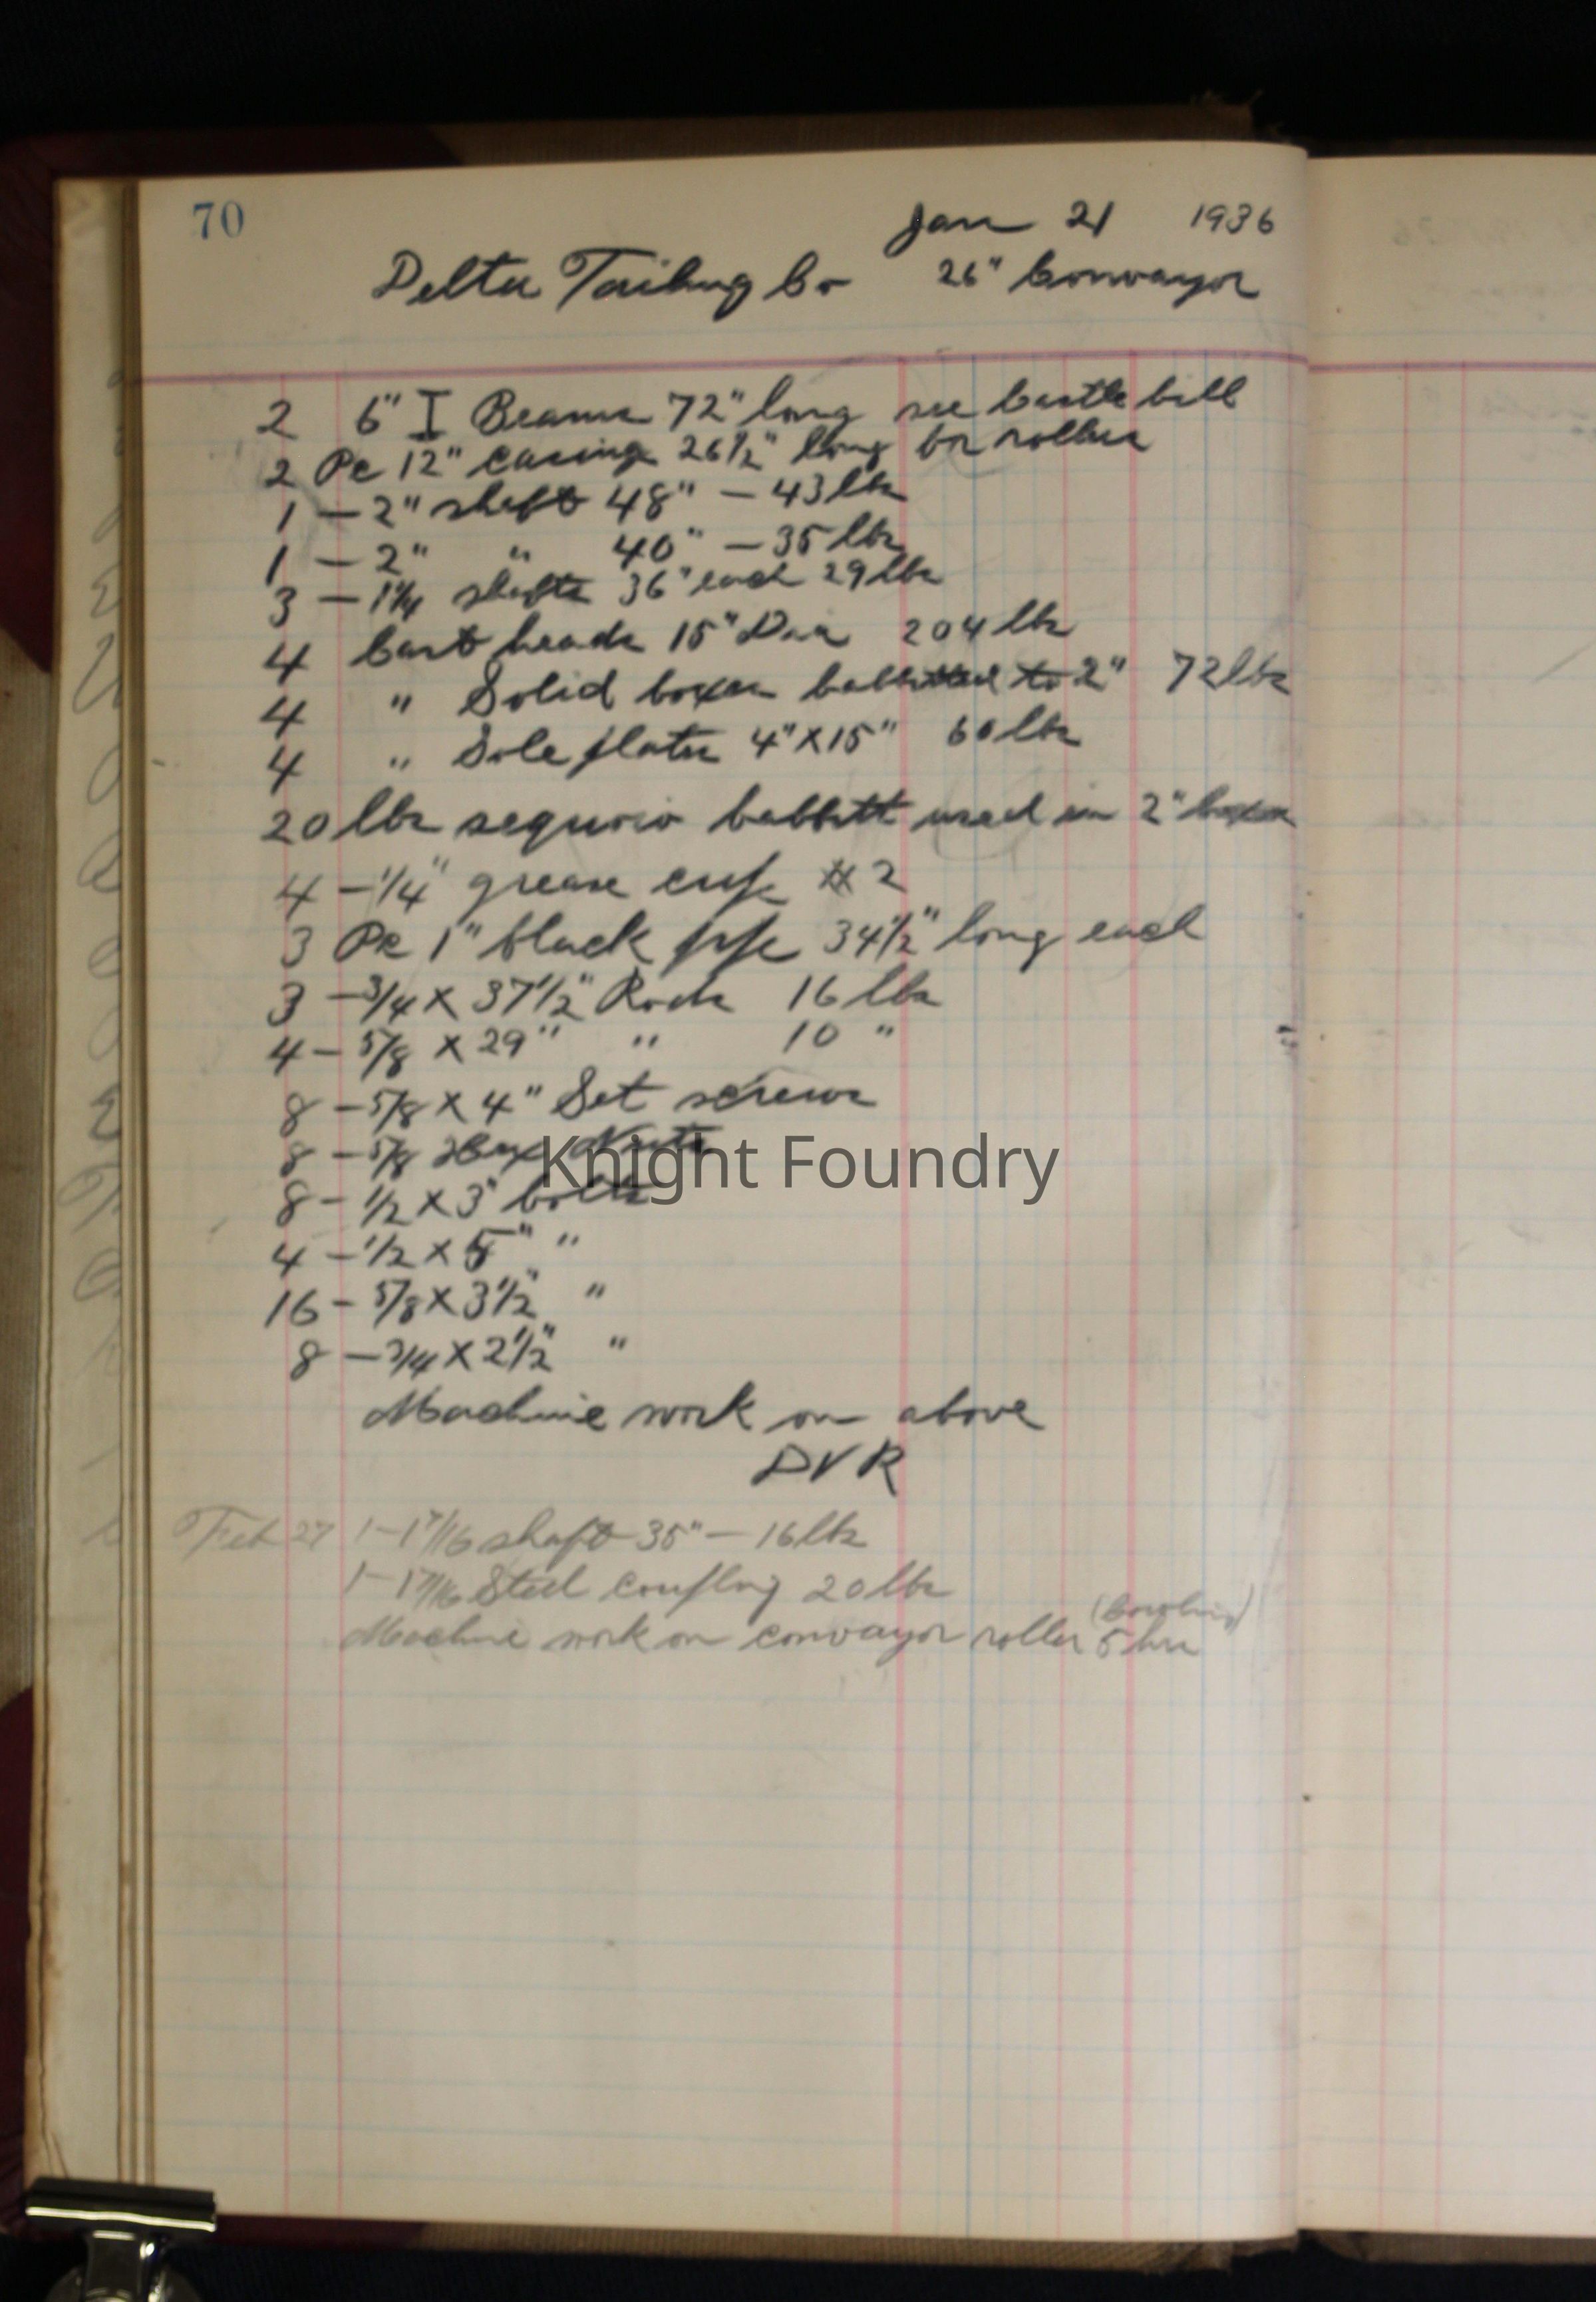 70
Jan 21 1936
Delta Tailing Co 26" Convayor
2 6" I Beams 72" long see Castle bill
2 Pc 12" casing 26 1/2" long for rollers
1 — 2" shaft 48" — 43 lbs
1 — 2" " 40" — 35 lbs
3 — 1 1/4 shafts 36" each 29 lbs
4 Cast heads 15" Dia 204 lbs
4 " Solid boxes babbitted to 2" 72 lbs
4 " Sole plates 4" X 15" 60 lbs
20 lbs sequoio babbitt used in 2" boxes
4 — 1/4" grease cups # 2
3 Pc 1" black pipe 34 1/2" long each
3 — 3/4 X 37 1/2" Rods 16 lbs
4 — 5/8 X 29" " 10 "
8 — 5/8 X 4" Set screws
8 — 5/8 Hex Nuts
8 — 1/2 X 3" bolts
4 — 1/2 X 5" "
16 — 5/8 X 3 1/2" "
8 — 3/4 X 2 1/2" "
Machine work on above
DVR
Feb 27 1 — 1 7/16 shaft 35" — 16 lbs
1 — 1 7/16 Steel coupling 20 lbs
Machine work on convayor roller 5 hrs
Knight Foundry